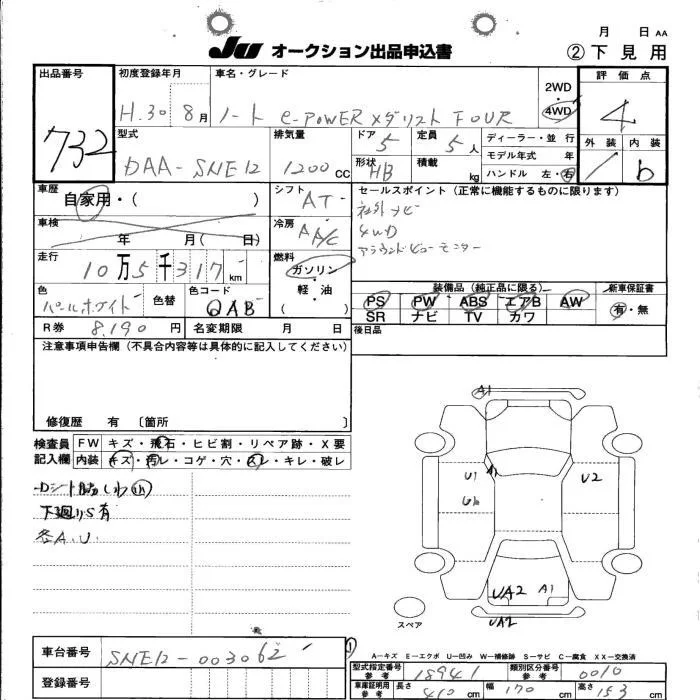 月 日 AA
JU オークション出品申込書 ②下見用
出品番号 732
初度登録年月 H.30 8月
車名・グレード ノート e-POWER Xメダリスト FOUR
2WD
4WD
評価点 4
外装 1 内装 b
型式 DAA-SNE12
排気量 1200 CC
ドア 5
定員 5人
形状 HB
積載 kg
ディーラー・並行
モデル年式 年
ハンドル 左・右
車歴 自家用・( )
シフト AT
セールスポイント(正常に機能するものに限ります)
社外ナビ
4WD
アラウンドビューモニター
車検 年 月( 日)
冷房 AA/C
走行 10万5千317km
燃料 ガソリン・軽油 ( )
色 パールホワイト
色替
色コード QAB
装備品(純正品に限る) 新車保証書
PS PW ABS エアB AW 有・無
SR ナビ TV カワ
R券 8,190円
名変期限 月 日
後日品
注意事項申告欄(不具合内容等は具体的に記入してください)
修復歴 有 〔箇所 〕
検査員記入欄
FW キズ・飛石・ヒビ割・リペア跡・X要
内装 キズ・汚レ・コゲ・穴・スレ・キレ・破レ
下廻りS有
各A.U.
A1
U1
A1
U2
UA2
A1
UA2
スペア
車台番号 SNE12-003062
登録番号
A-キズ E-エクボ U-凹み W-補修跡 S-サビ C-腐食 XX-交換済
型式指定番号 参考 18941
類別区分番号 参考 0010
車庫証明用 参考 長さ 410 cm 幅 170 cm 高さ 153 cm